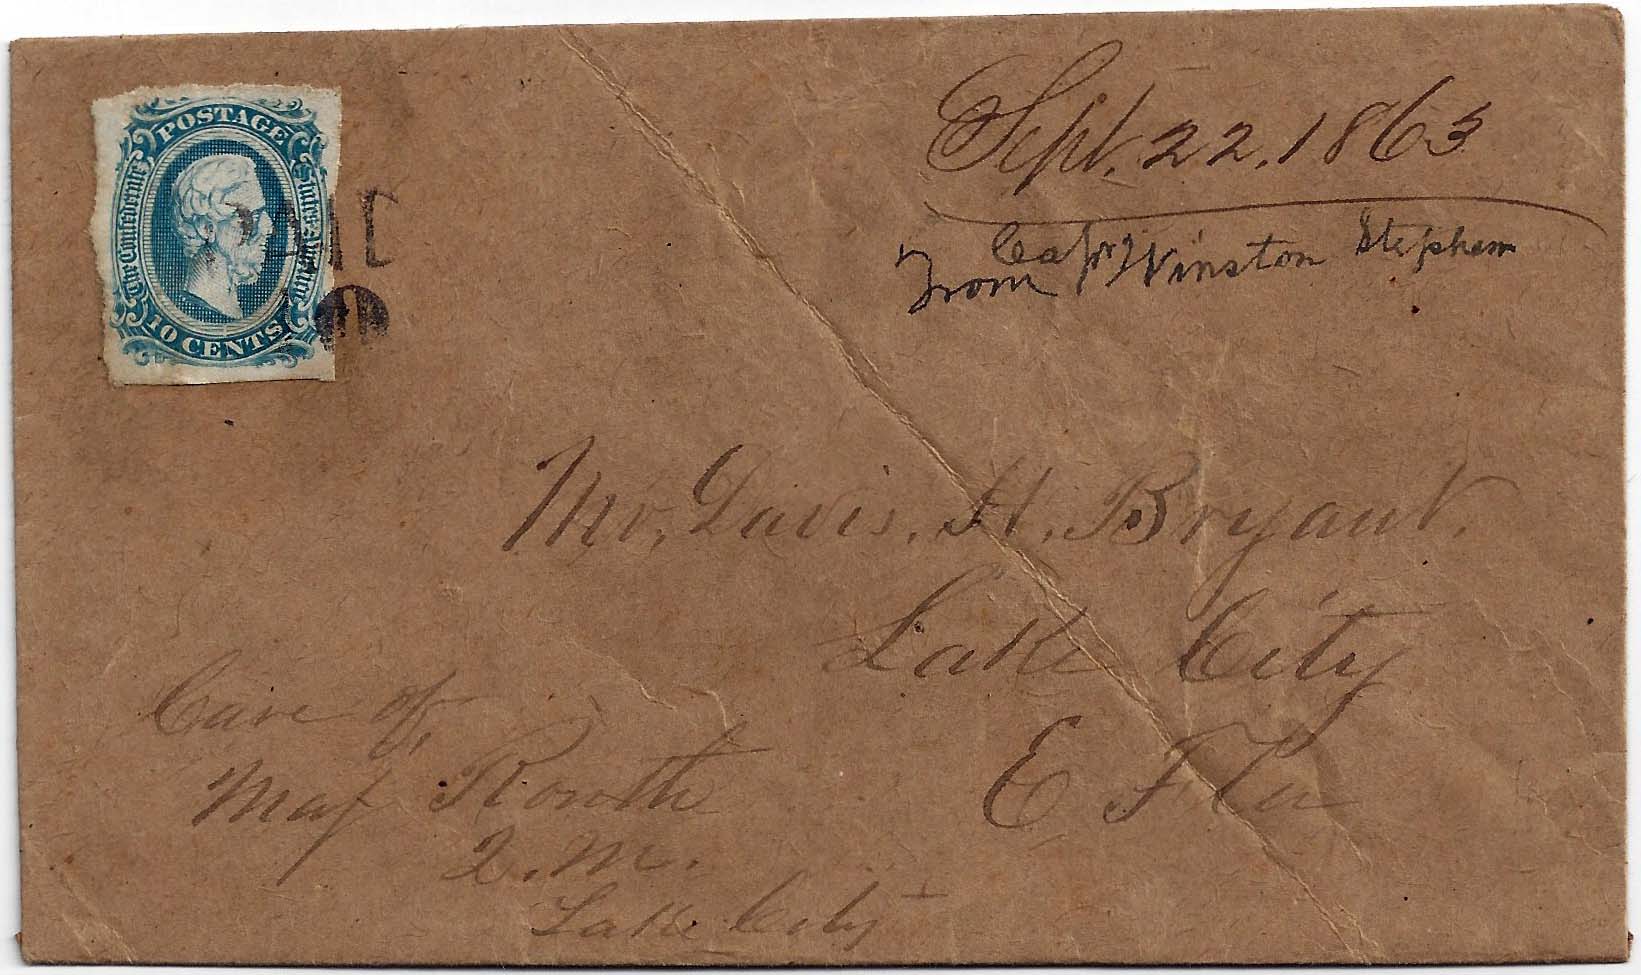 POSTAGE
The Confederate States of America
10 CENTS
PAID
10
Sept. 22, 1863
From Capt Winston Stephens
Mr. Davis. H. Bryant.
Lake City
E Fla
Care of,
Maj Routh
Q. M.
Lake City